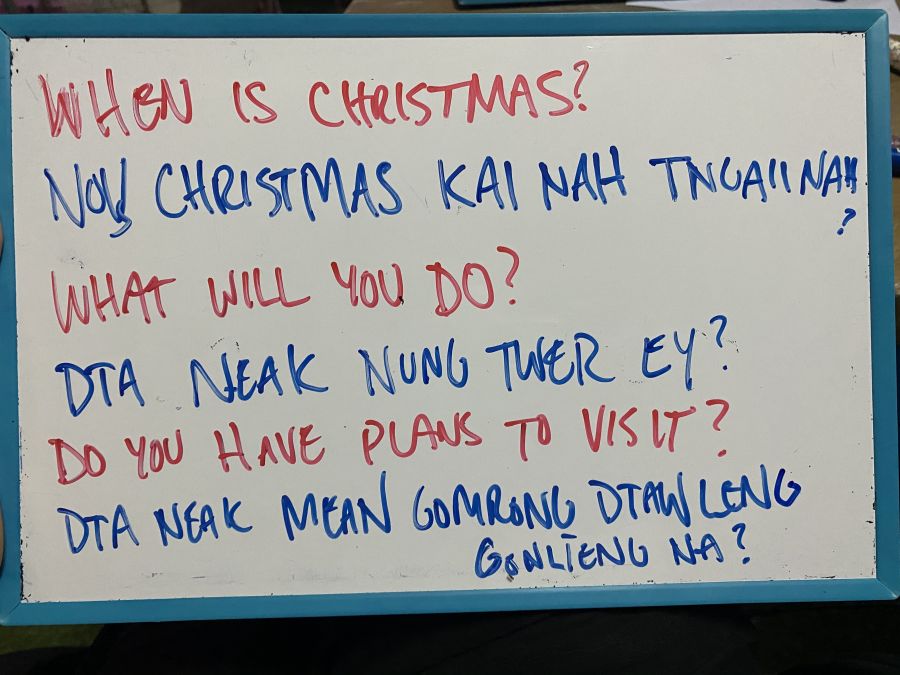 WHEN IS CHRISTMAS?
NOV CHRISTMAS KAI NAH TNGAII NAH
?
WHAT WILL YOU DO?
DTA NEAK NUNG TWER EY?
DO YOU HAVE PLANS TO VISIT?
DTA NEAK MEAN GOMRONG DTAW LENG
GONLIENG NA?